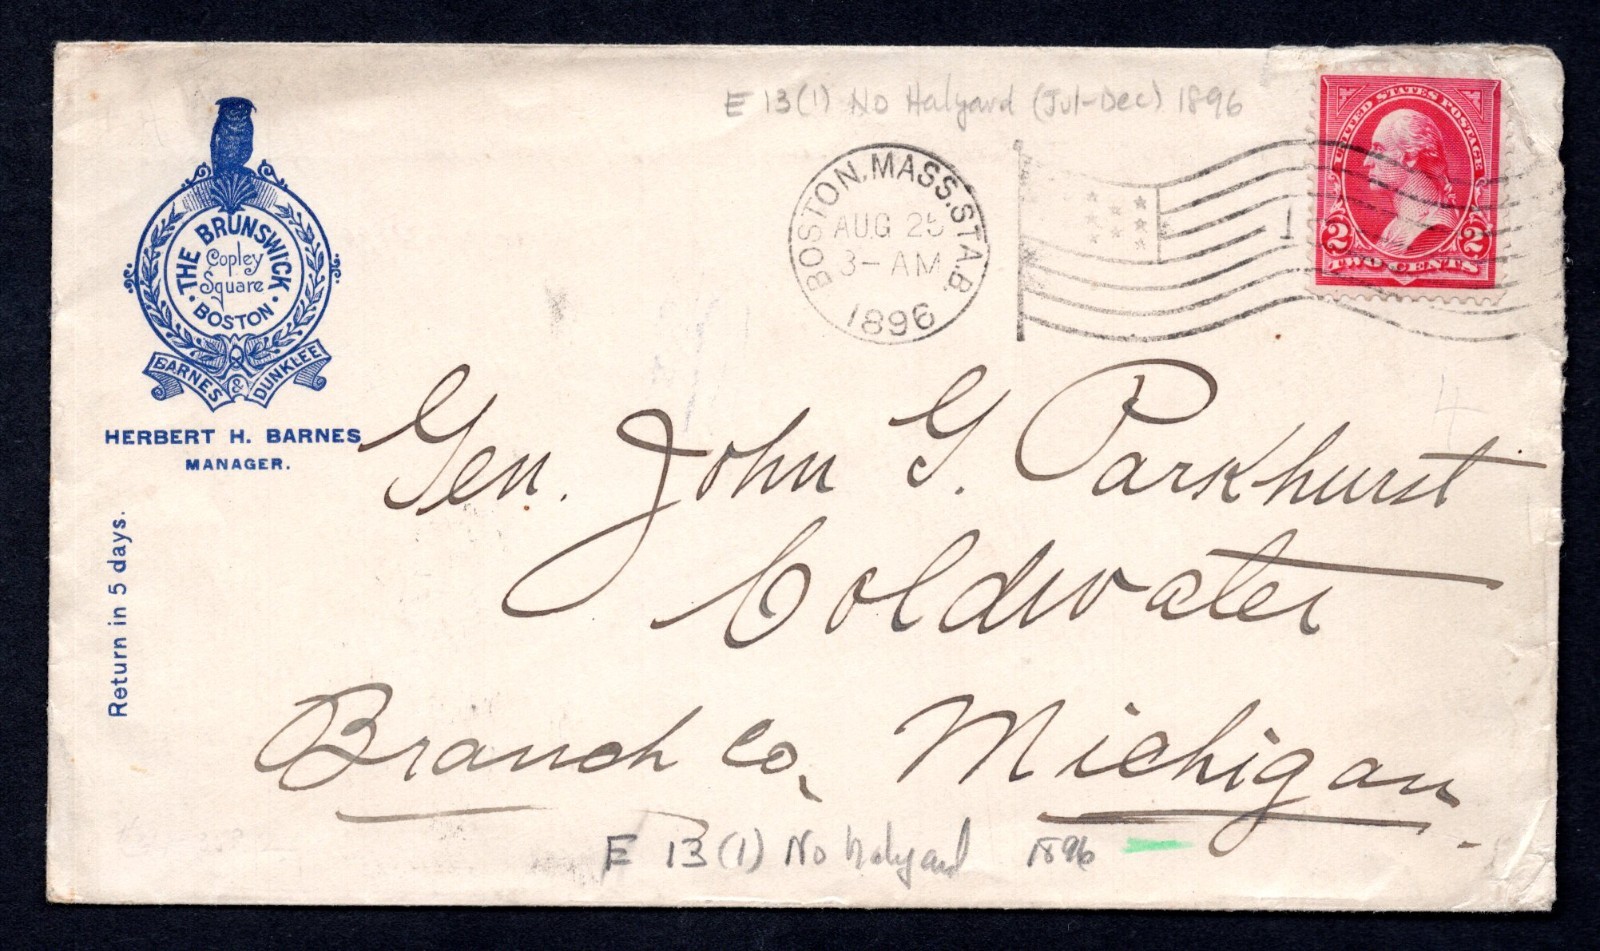 E 13(1) No Halyard (Jul-Dec) 1896
THE BRUNSWICK
Copley
Square
· BOSTON ·
BARNES & DUNKLEE
HERBERT H. BARNES
MANAGER.
Return in 5 days.
BOSTON, MASS. STA.B.
AUG 25
3-AM
1896
1
UNITED STATES POSTAGE
2 2
TWO CENTS
Gen. John G. Parkhurst
Coldwater
Branch Co, Michigan.
E 13(1) No halyard 1896
4